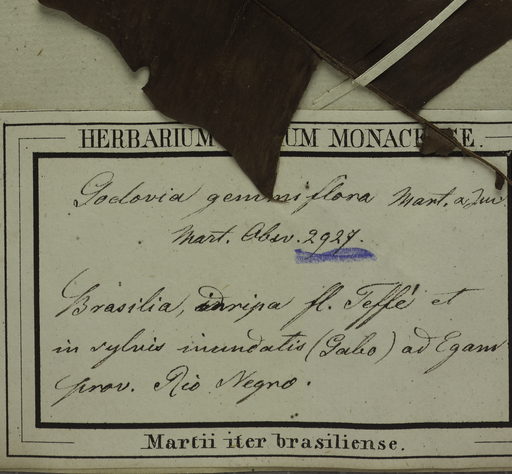 HERBARIUM UM MONAC SE.
Godovia gemmiflora Mart. a Zuc.
Mart. Obsv. 2927
Brasilia, in ripa fl. Teffé et
in sylvis inundatis (Gabo) ad Egam
prov. Rio Negro.
Martii iter brasiliense.